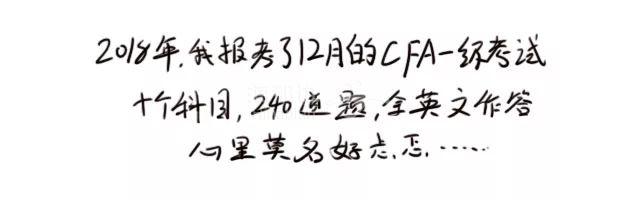 2018年,我报考了12月的CFA一级考试
十个科目,240道题,全英文作答
心里莫名好忐忑......